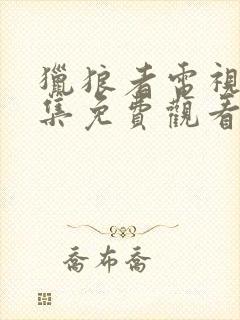 獵狼者電視
集免費觀看
喬布喬